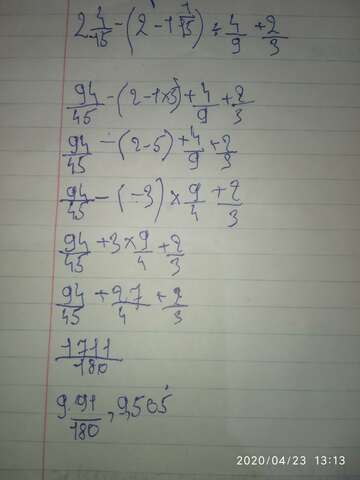 2 4/45 - (2 - 1 1/15) ÷ 4/9 + 2/3
94/45 - (2-1×5) ÷ 4/9 + 2/3
94/45 - (2-5) ÷ 4/9 + 2/3
94/45 - (-3) × 9/4 + 2/3
94/45 + 3 × 9/4 + 2/3
94/45 + 27/4 + 2/3
1711/180
9 91/180, 9,505
2020/04/23 13:13